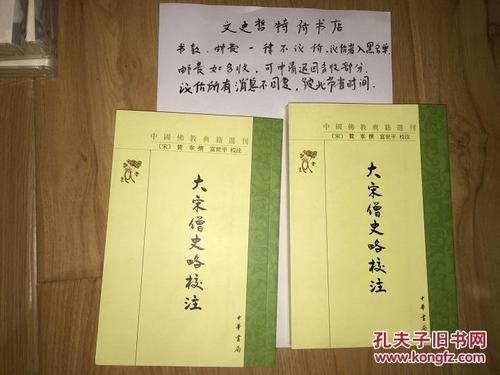 文史哲特价书店
书款、邮费一律不议价,议价者入黑名单.
邮费如多收,可申请退回多收部分.
议价所有消息不回复,彼此节省时间.
中國佛教典籍選刊
〔宋〕贊寧撰 富世平校注
大宋僧史略校注
中華書局
中國佛教典籍選刊
〔宋〕贊寧撰 富世平校注
大宋僧史略校注
中華書局
孔夫子旧书网
www.kongfz.com